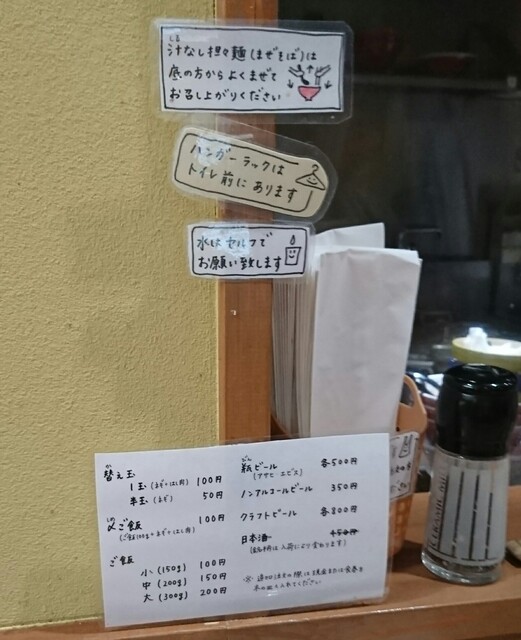 汁なし担々麺(まぜそば)は
底の方からよくまぜて
お召し上がりください
ハンガーラックは
トイレ前にあります
水はセルフで
お願い致します
替え玉
1玉(ネギ・ばら肉) 100円
半玉(ネギ) 50円
〆ご飯 100円
(ご飯100g+ネギ+ばら肉)
ご飯
小(150g) 100円
中(200g) 150円
大(300g) 200円
瓶ビール 各500円
(アサヒ・エビス)
ノンアルコールビール 350円
クラフトビール 各800円
日本酒 450円
(銘柄は入荷により変わります)
※追加注文の際は現金または食券を